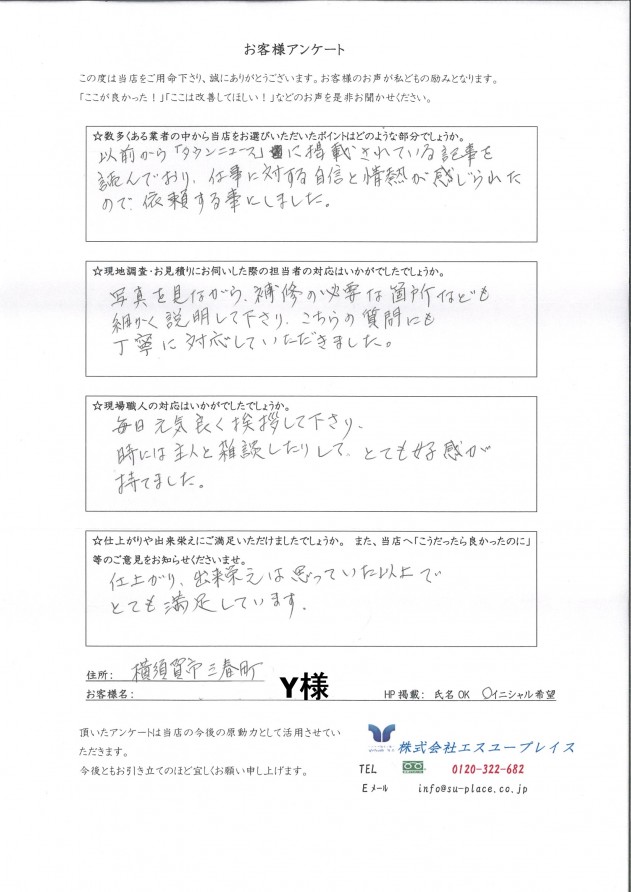 お客様アンケート
この度は当店をご用命下さり、誠にありがとうございます。お客様のお声が私どもの励みとなります。
「ここが良かった！」「ここは改善してほしい！」などのお声を是非お聞かせください。
☆数多くある業者の中から当店をお選びいただいたポイントはどのような部分でしょうか。
以前から「タウンニュース」に掲載されている記事を
読んでおり、仕事に対する自信と情熱が感じられた
ので、依頼する事にしました。
☆現地調査・お見積りにお伺いした際の担当者の対応はいかがでしたでしょうか。
写真を見ながら、補修の必要な箇所なども
細かく説明して下さり、こちらの質問にも
丁寧に対応していただきました。
☆現場職人の対応はいかがでしたでしょうか。
毎日元気良く挨拶して下さり、
時には主人と雑談したりして、とても好感が
持てました。
☆仕上がりや出来栄えにご満足いただけましたでしょうか。 また、当店へ「こうだったら良かったのに」
等のご意見をお知らせくださいませ。
仕上がり、出来栄えは思っていた以上で
とても満足しています。
住所： 横須賀市三春町
お客様名： Y様 HP掲載： 氏名OK ○イニシャル希望
頂いたアンケートは当店の今後の原動力として活用させてい
ただきます。
今後ともお引き立てのほど宜しくお願い申し上げます。
株式会社エスユープレイス
TEL 0120-322-682
Eメール info@su-place.co.jp